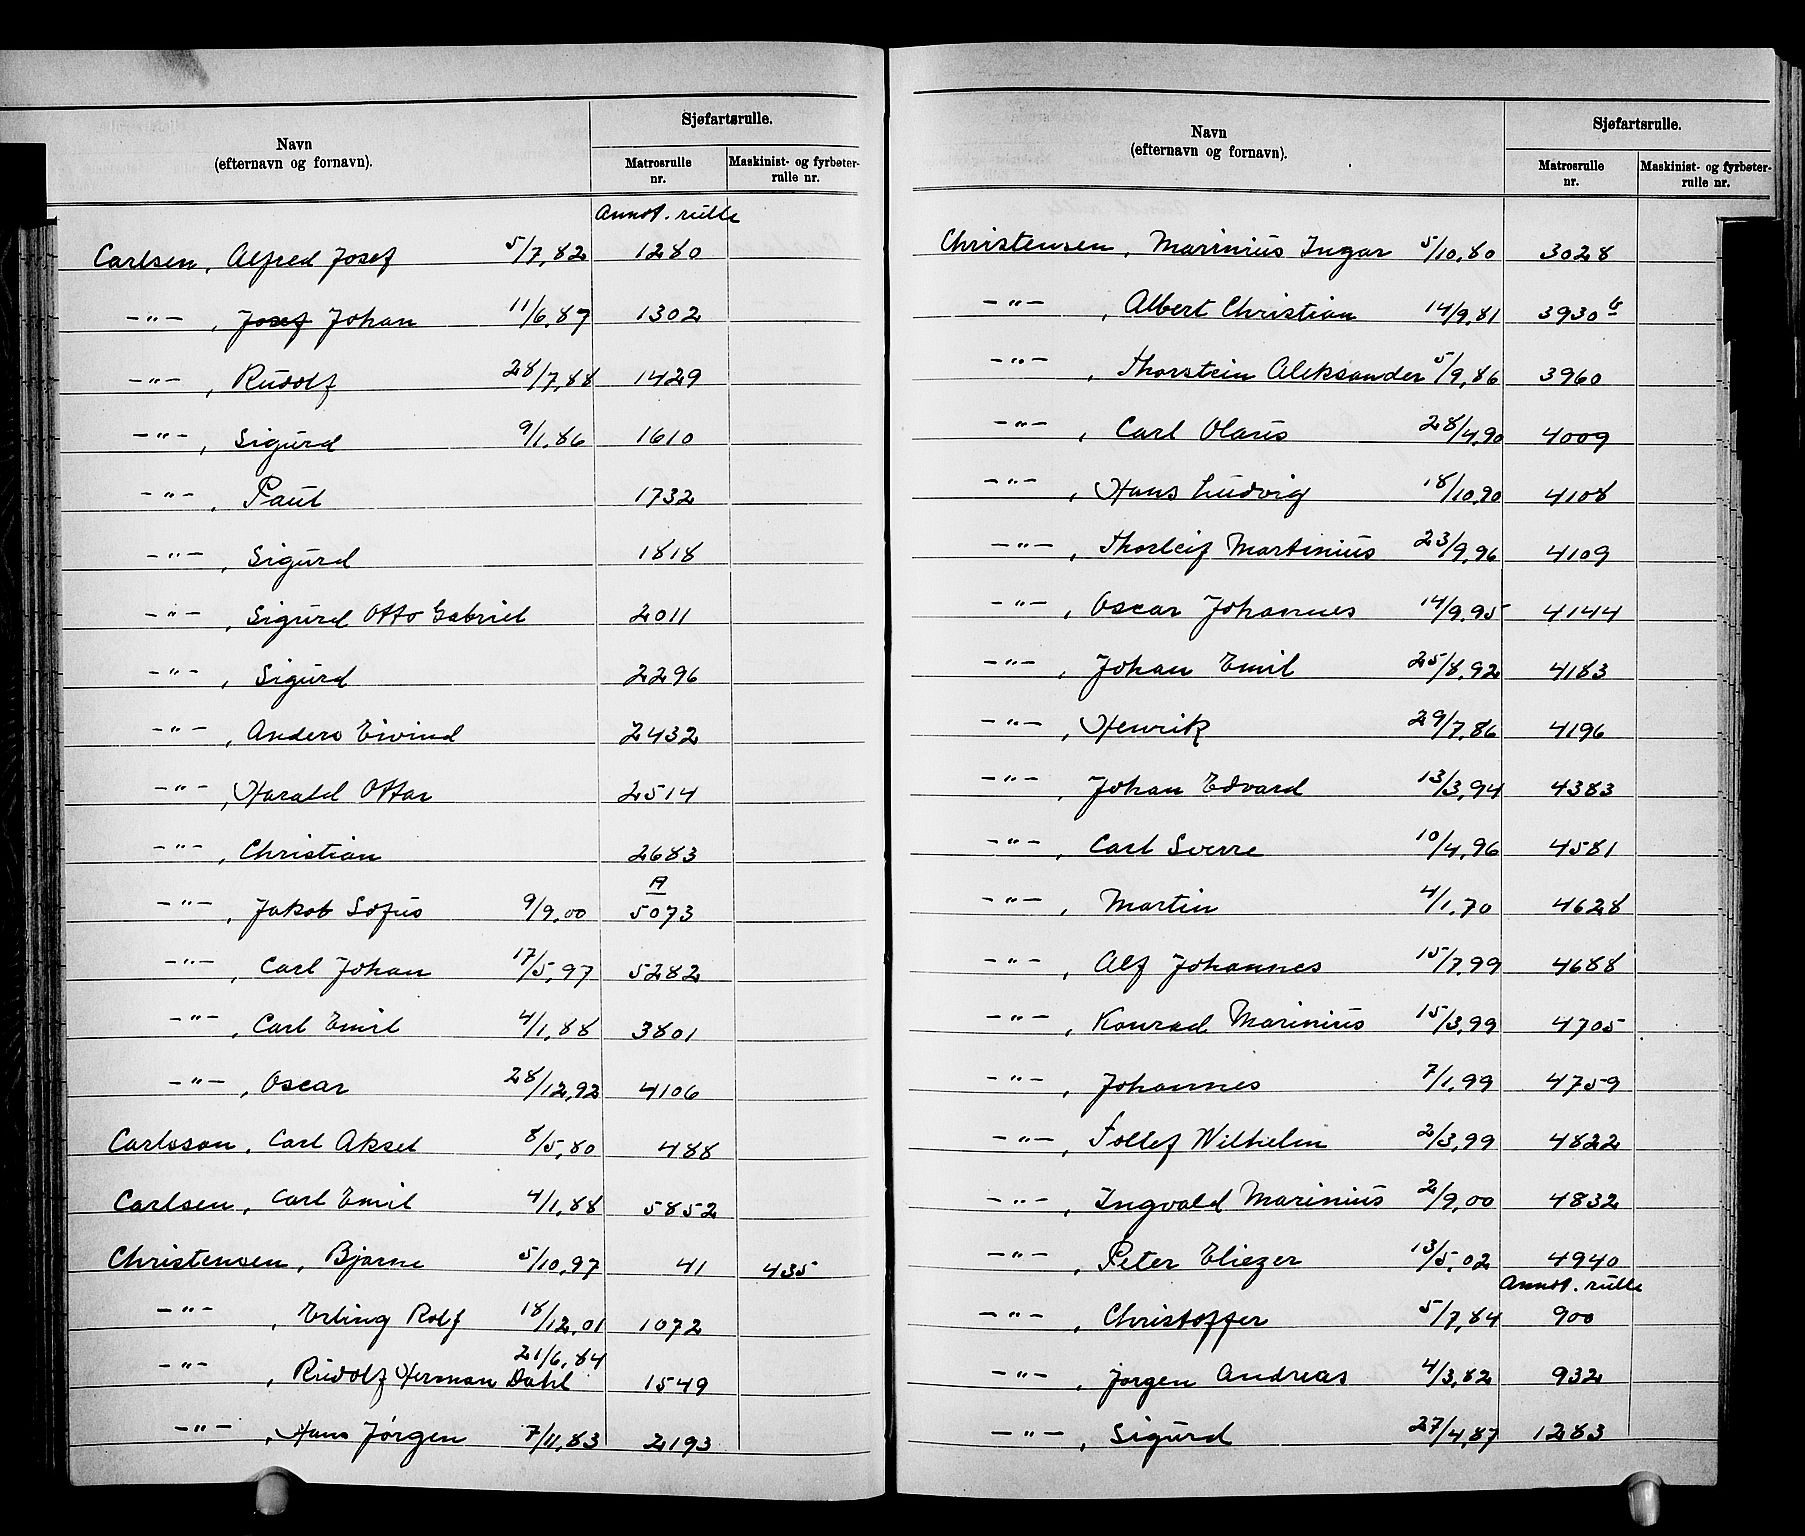 Navn
(efternavn og fornavn).
Sjøfartsrulle.
Matrosrulle nr.
Maskinist- og fyrbøter-rulle nr.
Annot. rulle
Carlsen, Alfred Josef 5/7,82 1280
-"-, Josef Johan 11/6,87 1302
-"-, Rudolf 28/7,88 1429
-"-, Sigurd 9/1,86 1610
-"-, Paul 1732
-"-, Sigurd 1818
-"-, Sigurd Otto Gabriel 2011
-"-, Sigurd 2296
-"-, Anders Eivind 2432
-"-, Harald Ottar 2514
-"-, Christian 2683
A
-"-, Jakob Sofus 9/9,00 5073
-"-, Carl Johan 17/5,97 5282
-"-, Carl Emil 4/1,88 3801
-"-, Oscar 28/12,92 4106
Carlsson, Carl Aksel 8/5,80 488
Carlsen, Carl Emil 4/1,88 5852
Christensen, Bjarne 5/10,97 41 435
-"-, Erling Rolf 18/12,01 1072
21/6,84
-"-, Rudolf Herman Dahl 1549
-"-, Hans Jørgen 7/11,83 2193
Navn
(efternavn og fornavn).
Sjøfartsrulle.
Matrosrulle nr.
Maskinist- og fyrbøter-rulle nr.
Christensen, Marinius Ingar 5/10,80 3028
-"-, Albert Christian 14/9,81 3930 b
-"-, Thorstein Aleksander 5/9,86 3960
-"-, Carl Olaus 28/4,90 4009
-"-, Hans Ludvig 18/10,90 4108
-"-, Thorleif Martinius 23/9,96 4109
-"-, Oscar Johannes 14/9,95 4144
-"-, Johan Emil 25/8,92 4183
-"-, Henrik 29/7,86 4196
-"-, Johan Edvard 13/3,94 4383
-"-, Carl Sverre 10/4,96 4581
-"-, Martin 4/1,70 4628
-"-, Alf Johannes 15/7,99 4688
-"-, Konrad Marinius 15/3,99 4705
-"-, Johannes 7/1,99 4759
-"-, Tollef Wilhelm 2/3,99 4822
-"-, Ingvald Marinius 2/9,00 4832
-"-, Peter Eliezer 13/5,02 4940
Annot. rulle
-"-, Christoffer 5/7,84 900
-"-, Jørgen Andreas 4/3,82 932
-"-, Sigurd 27/4,87 1283